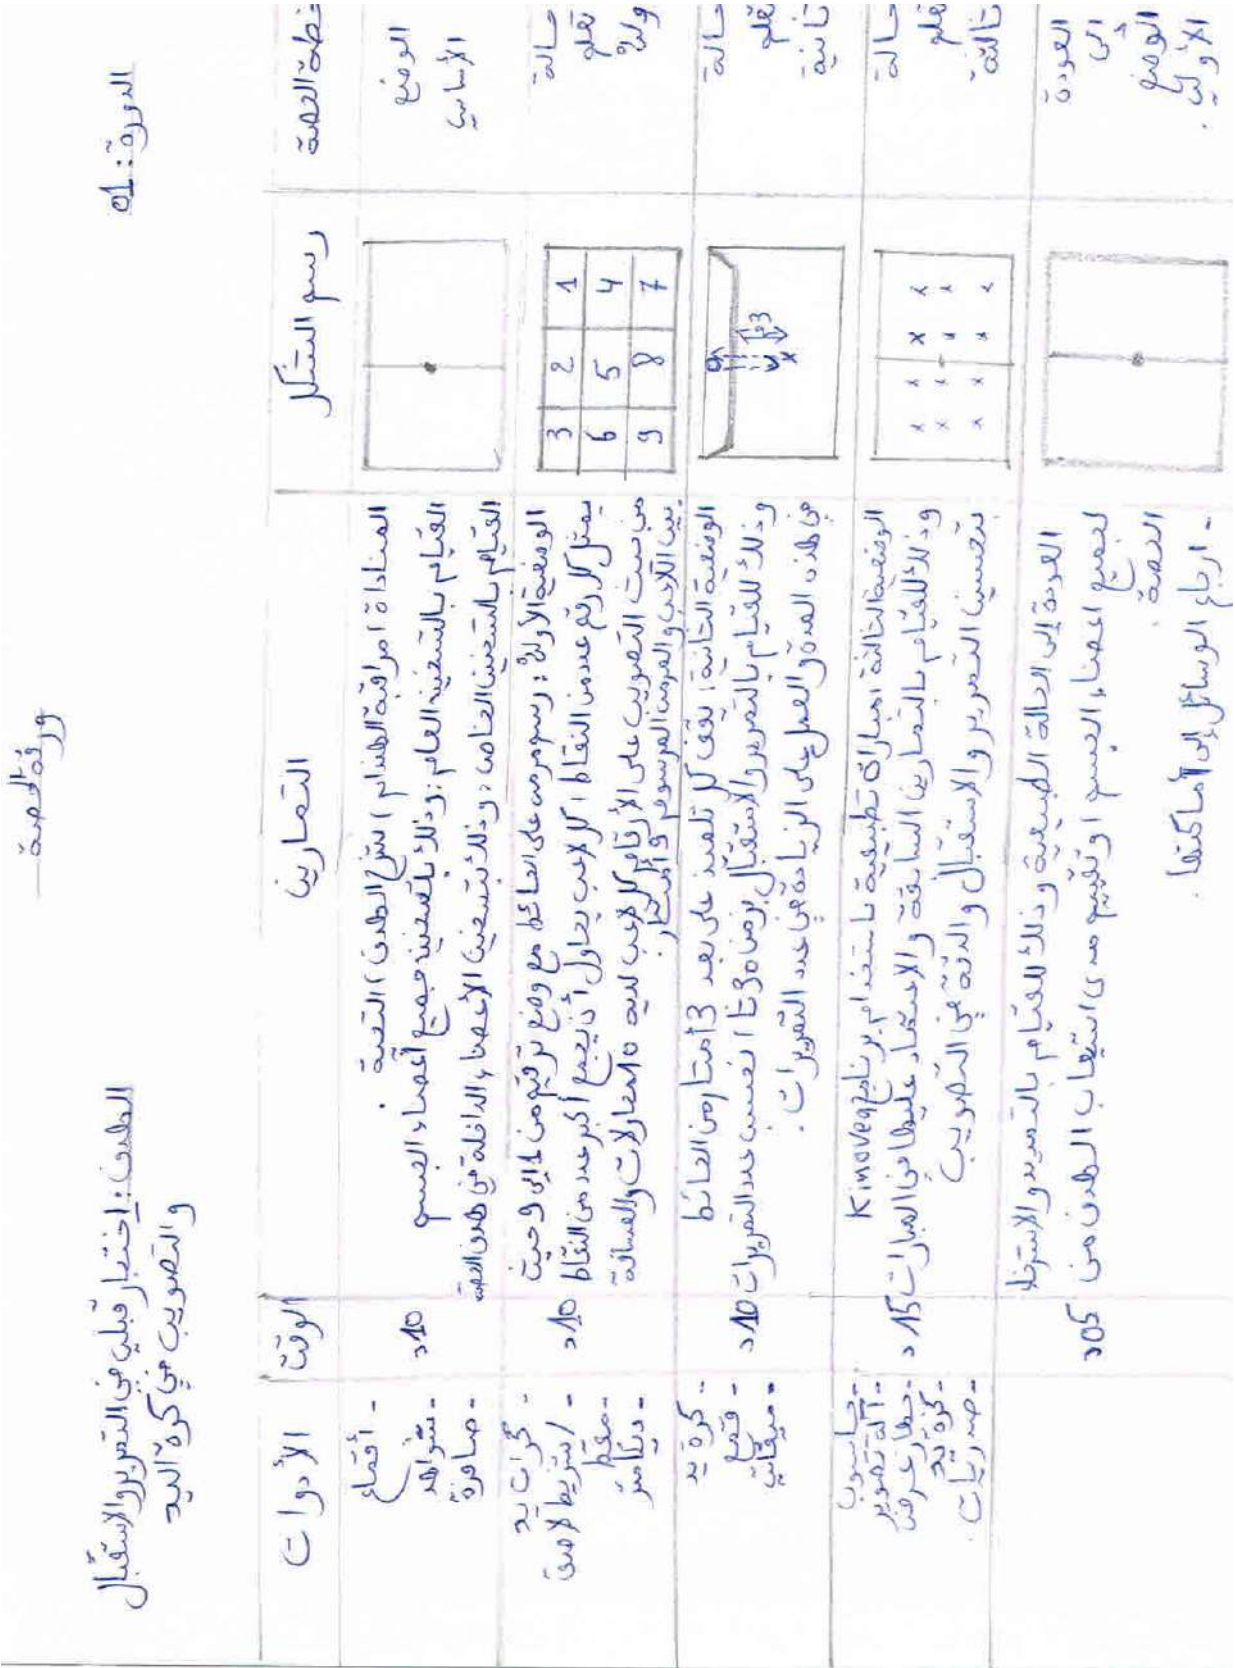 ورقة الحصة
الدورة: 01
الهدف: اختبار قبلي في التمرير والاستقبال
والتصويب في كرة اليد
خطة الحصة
رسم التشكل
التمارين
الوقت
الأدوات
الوضع
الأساسي
المناداة، مراقبة الهندام، شرح الهدف، التحية.
القيام بالتسخين العام: وذلك بتسخين جميع أعضاء الجسم
القيام بالتسخين الخاص: وذلك بتسخين الأعضاء الداخلة في هدف الحصة
10د
- أقماع
- شواهد
- صافرة
حالة
تعلم
أولى
1 2 3
4 5 6
7 8 9
الوضعية الأولى: رسم مرمى على الحائط مع وضع ترقيم من 1 إلى 9 حيث
يمثل كل رقم عدد من النقاط، كل لاعب يحاول أن يجمع أكبر عدد من النقاط
من حيث التصويب على الأرقام كل لاعب لديه 10 محاولات والمسافة
بين اللاعب والمرمى المرسوم 9 أمتار.
10د
- كرات يد
- شريط لاصق
- مقط
- ديكامتر
حالة
تعلم
ثانية
3م
الوضعية الثانية: يقف كل تلميذ على بعد 3 أمتار من الحائط
وذلك للقيام بالتمرير والاستقبال بزمن 30 ثا، نحسب عدد التمريرات
في هذه المدة والعمل على الزيادة في عدد التمريرات.
10د
- كرة يد
- قمع
- ميقاتي
حالة
تعلم
ثالثة
الوضعية الثالثة: مباراة تطبيقية باستخدام برنامج Kinovea
وذلك للقيام بالتمارين السابقة والاعتماد عليها في المباراة
بتحسين التمرير والاستقبال والدقة في التصويب
15د
- حاسوب
- آلة تصوير
- جهاز عرض
- كرة يد
- صدريات.
العودة
إلى
الوضع
الأولي.
العودة إلى الحالة الطبيعية وذلك للقيام بالتمديد والاسترخاء
لجميع أعضاء الجسم، وتقييم مدى استيعاب الهدف من
الحصة.
- ارجاع الوسائل إلى أماكنها.
05د